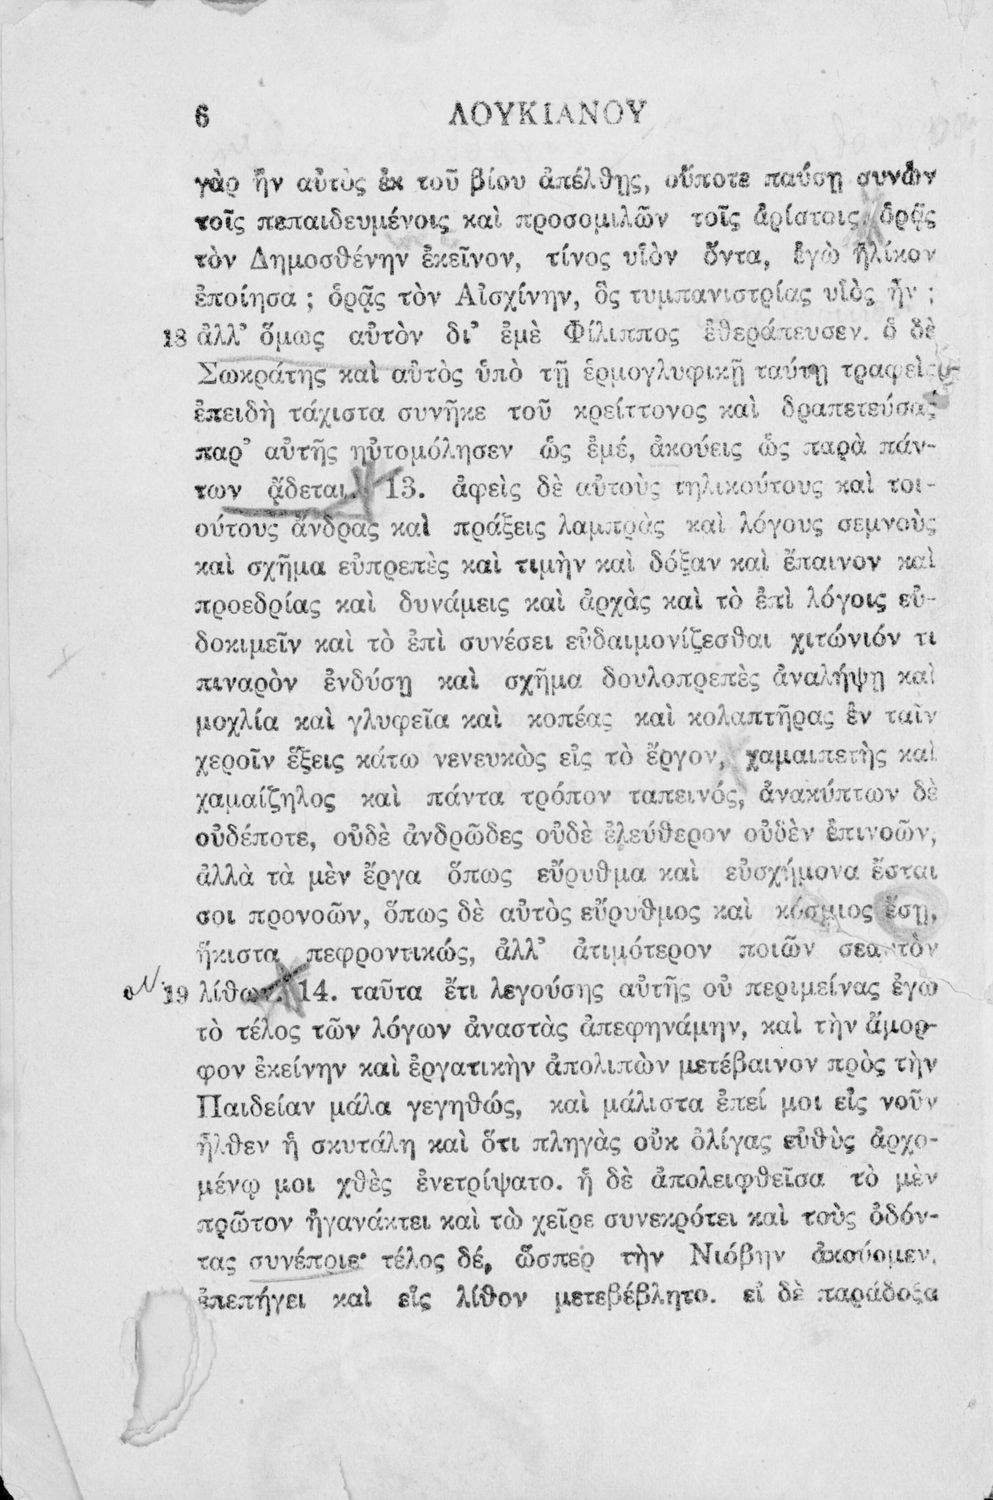 6 ΛΟΥΚΙΑΝΟΥ
γὰρ ἢν αὐτὸς ἐκ τοῦ βίου ἀπέλθῃς, οὔποτε παύσῃ συνὼν
τοῖς πεπαιδευμένοις καὶ προσομιλῶν τοῖς ἀρίστοις. ὁρᾷς
τὸν Δημοσθένην ἐκεῖνον, τίνος υἱὸν ὄντα, ἐγὼ ἡλίκον
ἐποίησα; ὁρᾷς τὸν Αἰσχίνην, ὃς τυμπανιστρίας υἱὸς ἦν;
18 ἀλλ’ ὅμως αὐτὸν δι’ ἐμὲ Φίλιππος ἐθεράπευσεν. ὁ δὲ
Σωκράτης καὶ αὐτὸς ὑπὸ τῇ ἑρμογλυφικῇ ταύτῃ τραφεὶς
ἐπειδὴ τάχιστα συνῆκε τοῦ κρείττονος καὶ δραπετεύσας
παρ’ αὐτῆς ηὐτομόλησεν ὡς ἐμέ, ἀκούεις ὡς παρὰ πάν-
των ᾄδεται. 13. ἀφεὶς δὲ αὐτοὺς τηλικούτους καὶ τοι-
ούτους ἄνδρας καὶ πράξεις λαμπρὰς καὶ λόγους σεμνοὺς
καὶ σχῆμα εὐπρεπὲς καὶ τιμὴν καὶ δόξαν καὶ ἔπαινον καὶ
προεδρίας καὶ δυνάμεις καὶ ἀρχὰς καὶ τὸ ἐπὶ λόγοις εὐ-
δοκιμεῖν καὶ τὸ ἐπὶ συνέσει εὐδαιμονίζεσθαι χιτώνιόν τι
πιναρὸν ἐνδύσῃ καὶ σχῆμα δουλοπρεπὲς ἀναλήψῃ καὶ
μοχλία καὶ γλυφεῖα καὶ κοπέας καὶ κολαπτῆρας ἐν ταῖν
χεροῖν ἕξεις κάτω νενευκὼς εἰς τὸ ἔργον, χαμαιπετὴς καὶ
χαμαίζηλος καὶ πάντα τρόπον ταπεινός, ἀνακύπτων δὲ
οὐδέποτε, οὐδὲ ἀνδρῶδες οὐδὲ ἐλεύθερον οὐδὲν ἐπινοῶν,
ἀλλὰ τὰ μὲν ἔργα ὅπως εὔρυθμα καὶ εὐσχήμονα ἔσται
σοι προνοῶν, ὅπως δὲ αὐτὸς εὔρυθμος καὶ κόσμιος ἔσῃ,
ἥκιστα πεφροντικώς, ἀλλ’ ἀτιμότερον ποιῶν σεαυτὸν
19 λίθων. 14. ταῦτα ἔτι λεγούσης αὐτῆς οὐ περιμείνας ἐγὼ
τὸ τέλος τῶν λόγων ἀναστὰς ἀπεφηνάμην, καὶ τὴν ἄμορ-
φον ἐκείνην καὶ ἐργατικὴν ἀπολιπὼν μετέβαινον πρὸς τὴν
Παιδείαν μάλα γεγηθώς, καὶ μάλιστα ἐπεί μοι εἰς νοῦν
ἦλθεν ἡ σκυτάλη καὶ ὅτι πληγὰς οὐκ ὀλίγας εὐθὺς ἀρχο-
μένῳ μοι χθὲς ἐνετρίψατο. ἡ δὲ ἀπολειφθεῖσα τὸ μὲν
πρῶτον ἠγανάκτει καὶ τὼ χεῖρε συνεκρότει καὶ τοὺς ὀδόν-
τας συνέπριε· τέλος δέ, ὥσπερ τὴν Νιόβην ἀκούομεν,
ἐπεπήγει καὶ εἰς λίθον μετεβέβλητο. εἰ δὲ παράδοξα